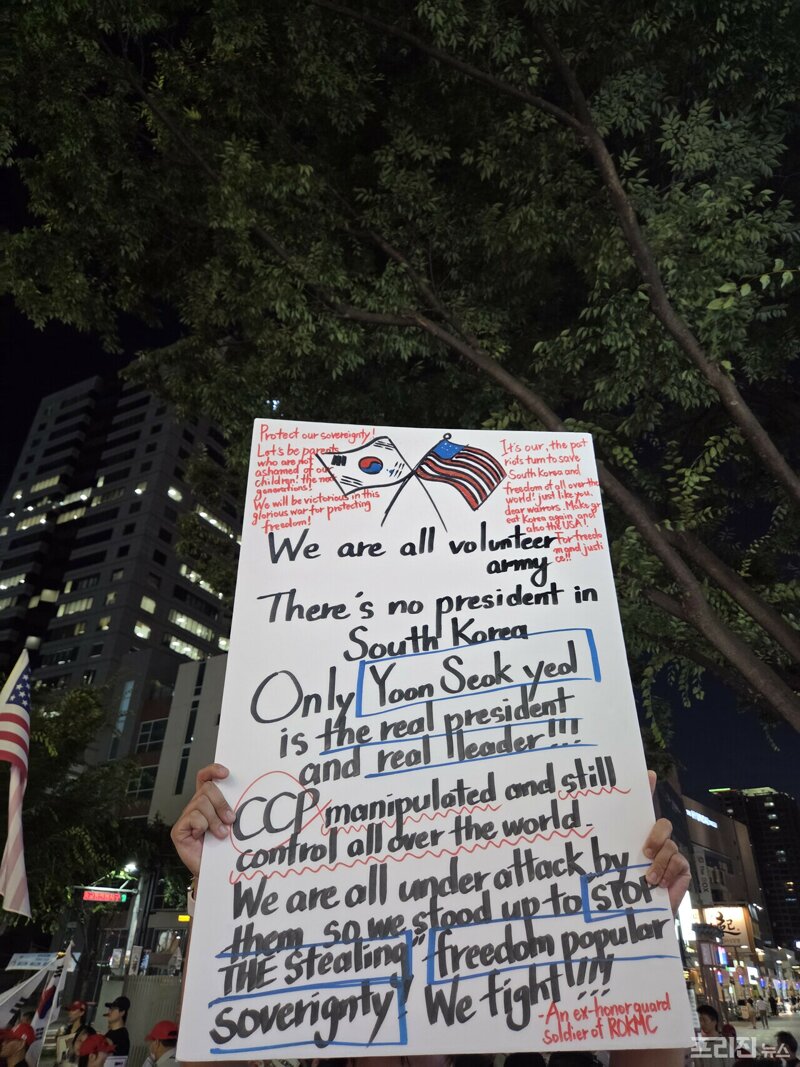 Protect our sovereignty!
Lets be parents
who are not
ashamed of our
children! the next
generations!
We will be victorious in this
glorious war for protecting
freedom!
It's our, the pat
riots turn to save
South Korea and
freedom of all over the
world! just like you,
dear warriors. Make gr
eat Korea again and
also the USA!
For freedo
m and justi
ce!!
We are all volunteer
army
There's no president in
South Korea
Only Yoon Seok yeol
is the real president
and real leader!!!
CCP manipulated and still
control all over the world.
We are all under attack by
them so we stood up to "STOP
THE Stealing" "freedom popular
soverignty" We fight!!!
-An ex-honor guard
soldier of ROKMC
프리진뉴스